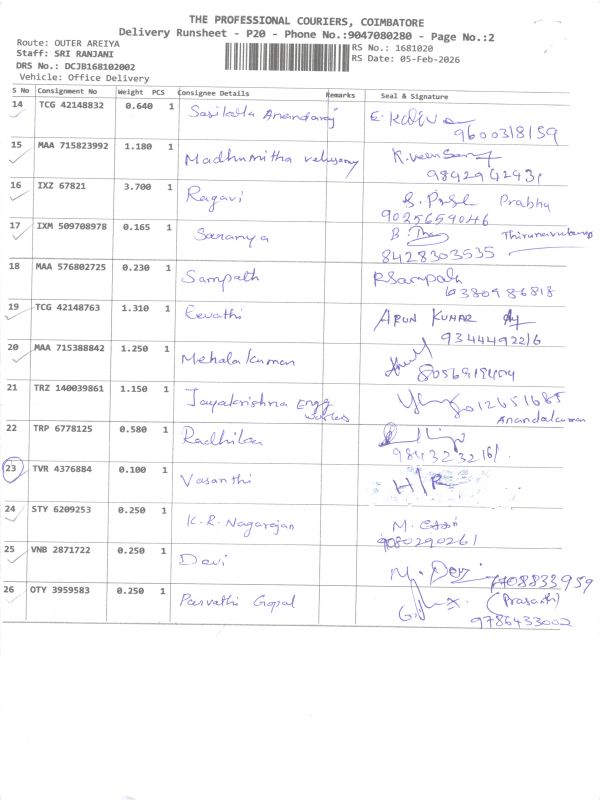 THE PROFESSIONAL COURIERS, COIMBATORE
Delivery Runsheet - P20 - Phone No.:9047080280 - Page No.:2
Route: OUTER AREIYA
Staff: SRI RANJANI
DRS No.: DCJB168102002
Vehicle: Office Delivery
RS No.: 1681020
RS Date: 05-Feb-2026
S No Consignment No Weight PCS Consignee Details Remarks Seal & Signature
14 TCG 42148832 0.640 1 Sasikala Anandaraj
9600318159
15 MAA 715823992 1.180 1 Madhumitha velusamy
9842942431
16 IXZ 67821 3.700 1 Ragavi Prabha
9025659046
17 IXM 509708978 0.165 1 Saranya
8428303535
18 MAA 576802725 0.230 1 Sampath R Sampath
6380986818
19 TCG 42148763 1.310 1 Revathi ARUN KUMAR
9344492216
20 MAA 715388842 1.250 1 Mehala Kumar
8056919404
21 TRZ 140039861 1.150 1 Jayakrishna Engg works
Anandakumar
22 TRP 6778125 0.580 1 Radhika
23 TVR 4376884 0.100 1 Vasanthi H/R
24 STY 6209253 0.250 1 K.R. Nagarajan
9080290261
25 VNB 2871722 0.250 1 Devi M. Devi
7708833959
26 OTY 3959583 0.250 1 Parvathi Gopal (Prasanth)
9786433002